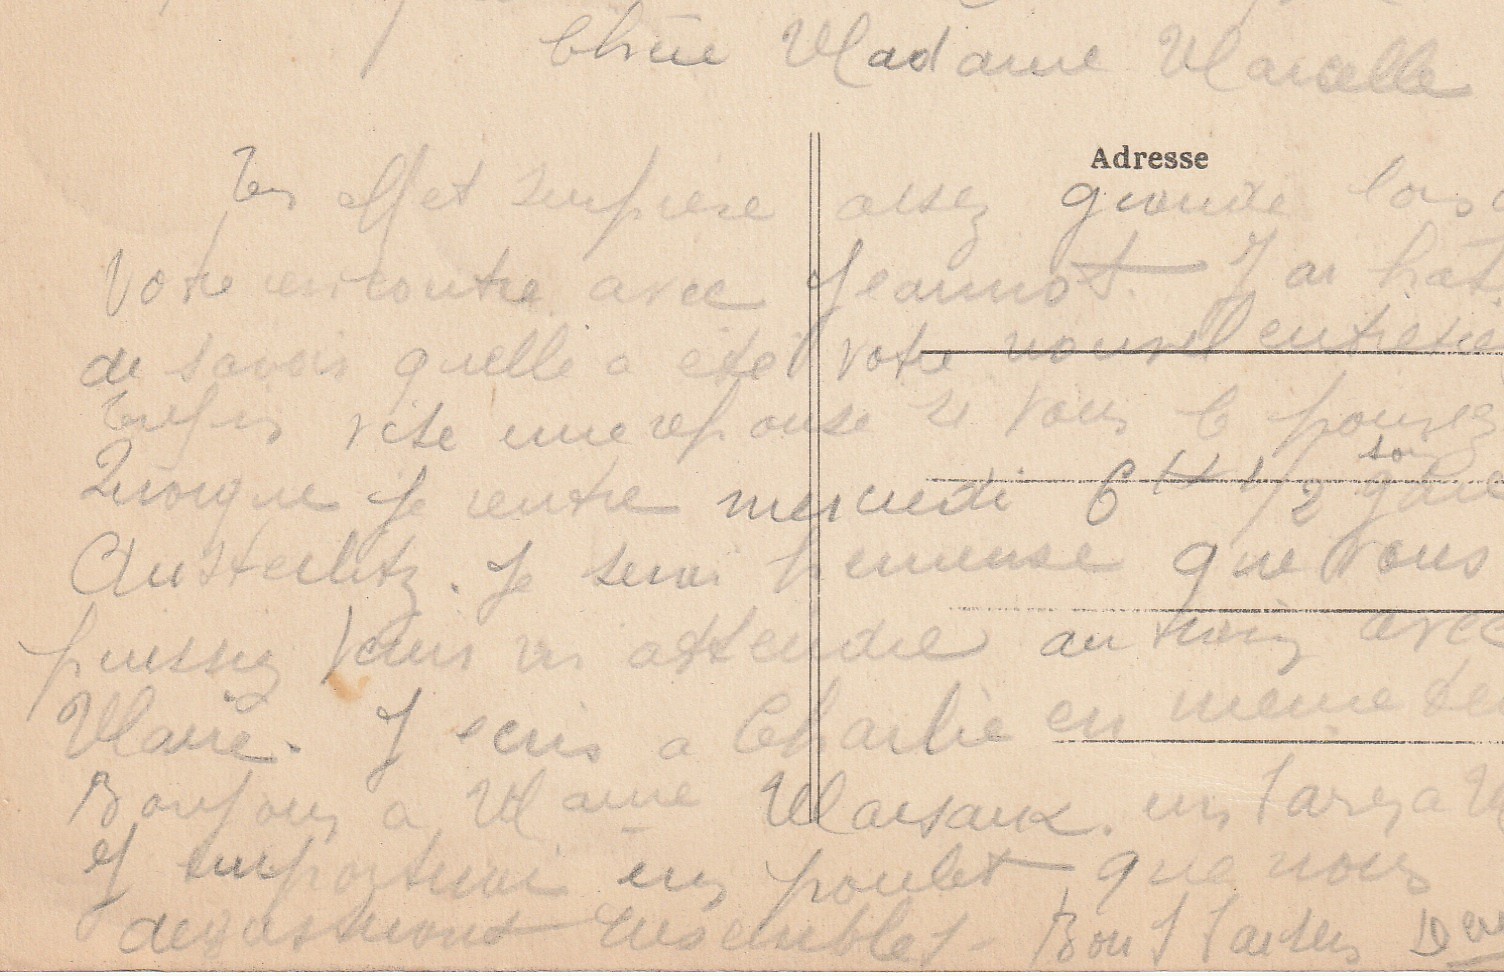 Chere Madame Marcelle
Adresse
En effet surprise assez grande lors
Votre rencontre avec Jeannot. J ai hate
de savoir quelle a été votre nouvel entretien
vite une reponse si vous le pouvez
Quoique je rentre mercredi 6 H 1/2 soir gare
Austerlitz. Je serai heureuse que vous
puissiez venir m attendre au train avec
Marie. J ecris a Charlie en meme
Bonjour a Mame Marsaux. un a
J emporterai un poulet que nous
degusterons ensembles - Bons